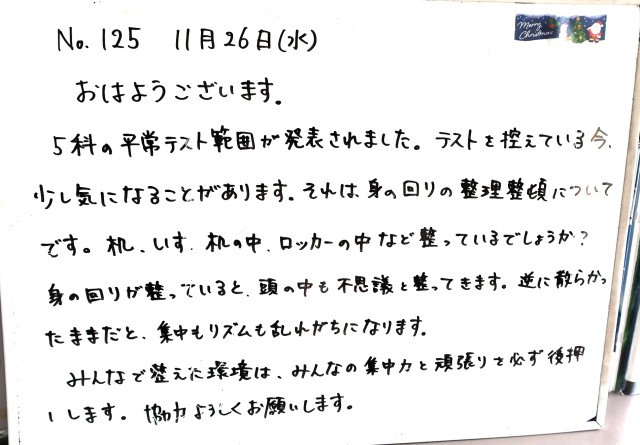 No. 125 11月26日(水)
Merry Christmas
おはようございます。
5科の平常テスト範囲が発表されました。テストを控えている今、
少し気になることがあります。それは、身の回りの整理整頓について
です。机、いす、机の中、ロッカーの中など整っているでしょうか?
身の回りが整っていると、頭の中も不思議と整ってきます。逆に散らかっ
たままだと、集中もリズムも乱れがちになります。
みんなで整えた環境は、みんなの集中力と頑張りを必ず後押
しします。協力よろしくお願いします。